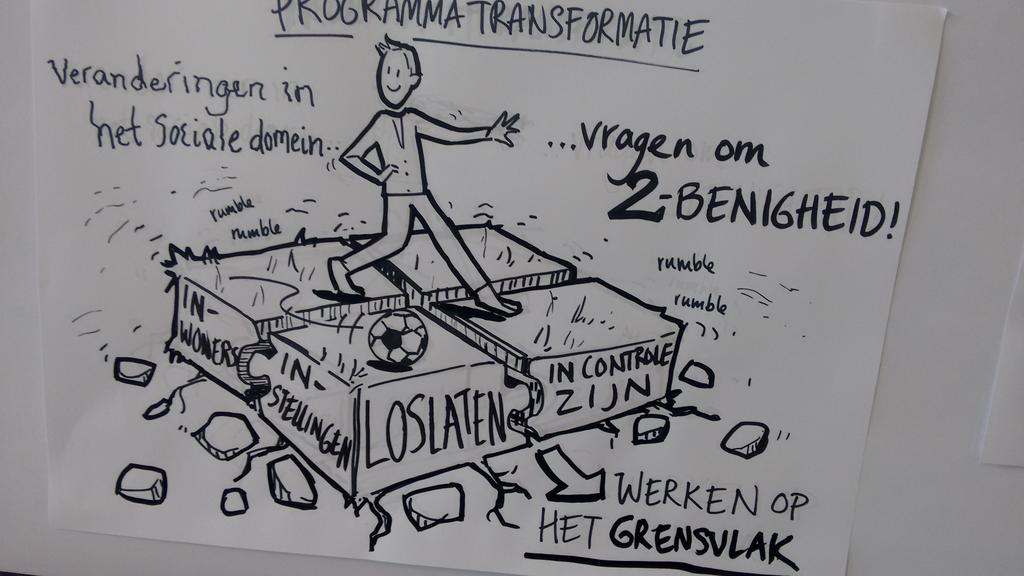 PROGRAMMA TRANSFORMATIE
Veranderingen in
het Sociale domein...
...vragen om
2-BENIGHEID!
rumble
rumble
rumble
rumble
IN-
WONERS
IN-
STELLINGEN
LOSLATEN
IN CONTROLE
ZIJN
WERKEN OP
HET GRENSVLAK